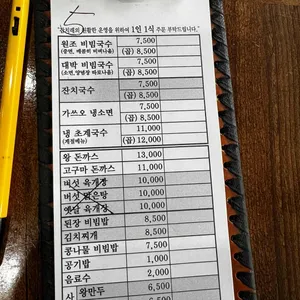 5
"잔치집의 원활한 운영을 위하여 1인 1식 주문 부탁드립니다."
원조 비빔국수 7,500
(중면, 매콤히 비벼나옴) (곱) 8,500
대박 비빔국수 7,500
(소면, 양념장 따로나옴) (곱) 8,500
잔치국수 7,500
(곱) 8,500
가쓰오 냉소면 7,500
(곱) 8,500
냉 초계국수 11,000
(계절메뉴) (곱) 12,000
왕 돈까스 13,000
고구마 돈까스 11,000
버섯 육개장 10,000
버섯 맑은탕 10,000
옛날 육개장 10,000
된장 비빔밥 8,500
김치찌개 8,500
콩나물 비빔밥 7,500
공기밥 1,000
음료수 2,000
사 왕만두 6,500
6,500